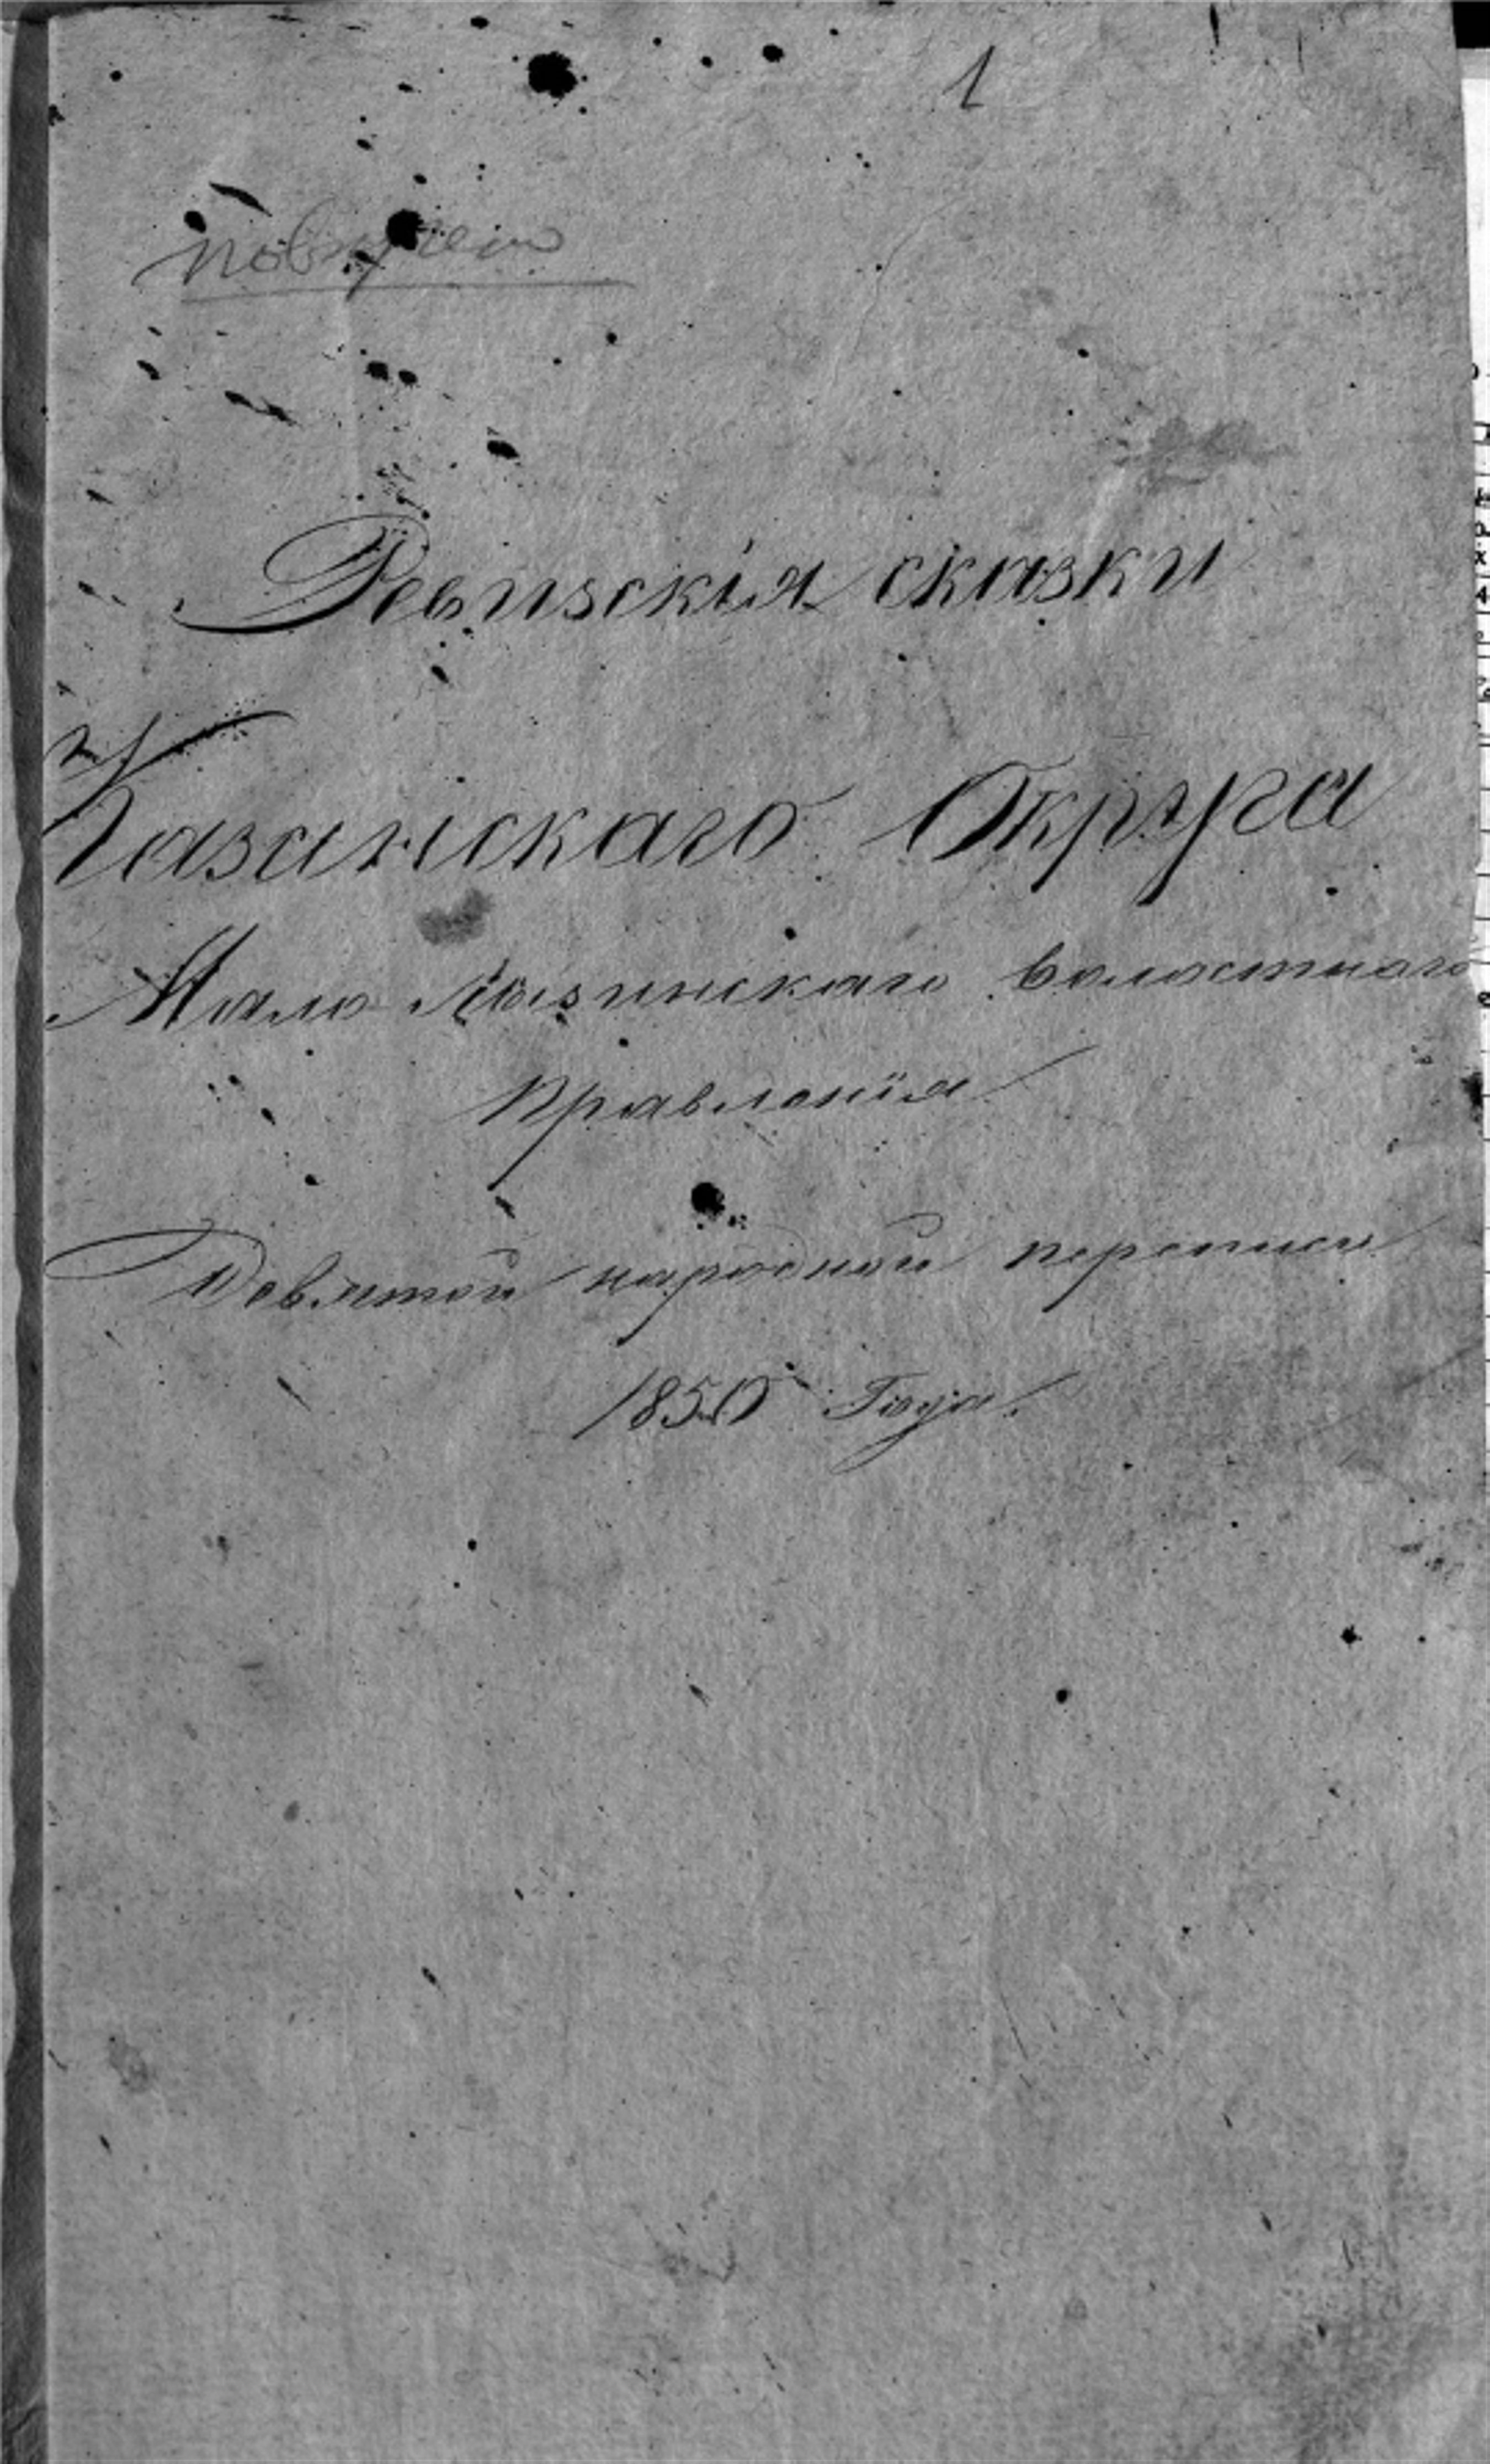 1
Ревизскія сказки
Казанскаго Округа
Мало волостнаго
Правленія
Девятой народной переписи
1850 Года.